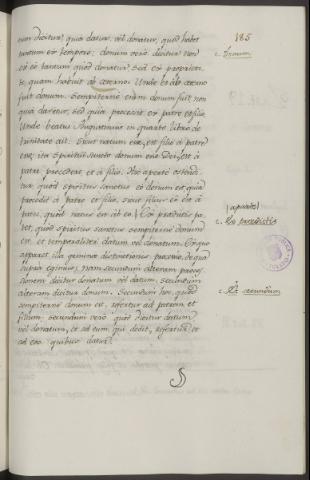 185
eum dicitur, quia datur, vel donatur, quod habet
tantum ex tempore: donum vero dicitur non
ex eo tantum quod donatur, sed ex proprieta-
te, quam habuit ab æterno. Unde et ab æterno
fuit donum. Sempiterne enim donum fuit, non
quia daretur, sed quia processit ex patre et filio.
Unde beatus Augustinus in quarto libro de
trinitate ait. Sicut natum esse, est filio a patre
esse, ita Spiritui Sancto donum esse Dei, est a
patre procedere, et a filio. Hic aperte ostendi-
tur, quod spiritus sanctus eo donum est, quia
procedit a patre et filio, sicut filius eo est a
patre, quod natus est ab eo. Ex prædictis pa-
tet, quod spiritus sanctus sempiterne donum
est, et temporaliter datum vel donatum. Ex quo
apparet illa gemina distinctio processionis, de qua
supra egimus. Nam secundum alteram proces-
sionem dicitur donatum vel datum, secundum
alteram dicitur donum. Secundum hoc, quod
sempiterne donum est, refertur ad patrem, et
filium: secundum vero quod dicitur datum
vel donatum, et ad eum qui dedit, refertur, et
ad eos quibus datur.
c. Donum
(aparte)
c. Ex prædictis
c. Et secundum